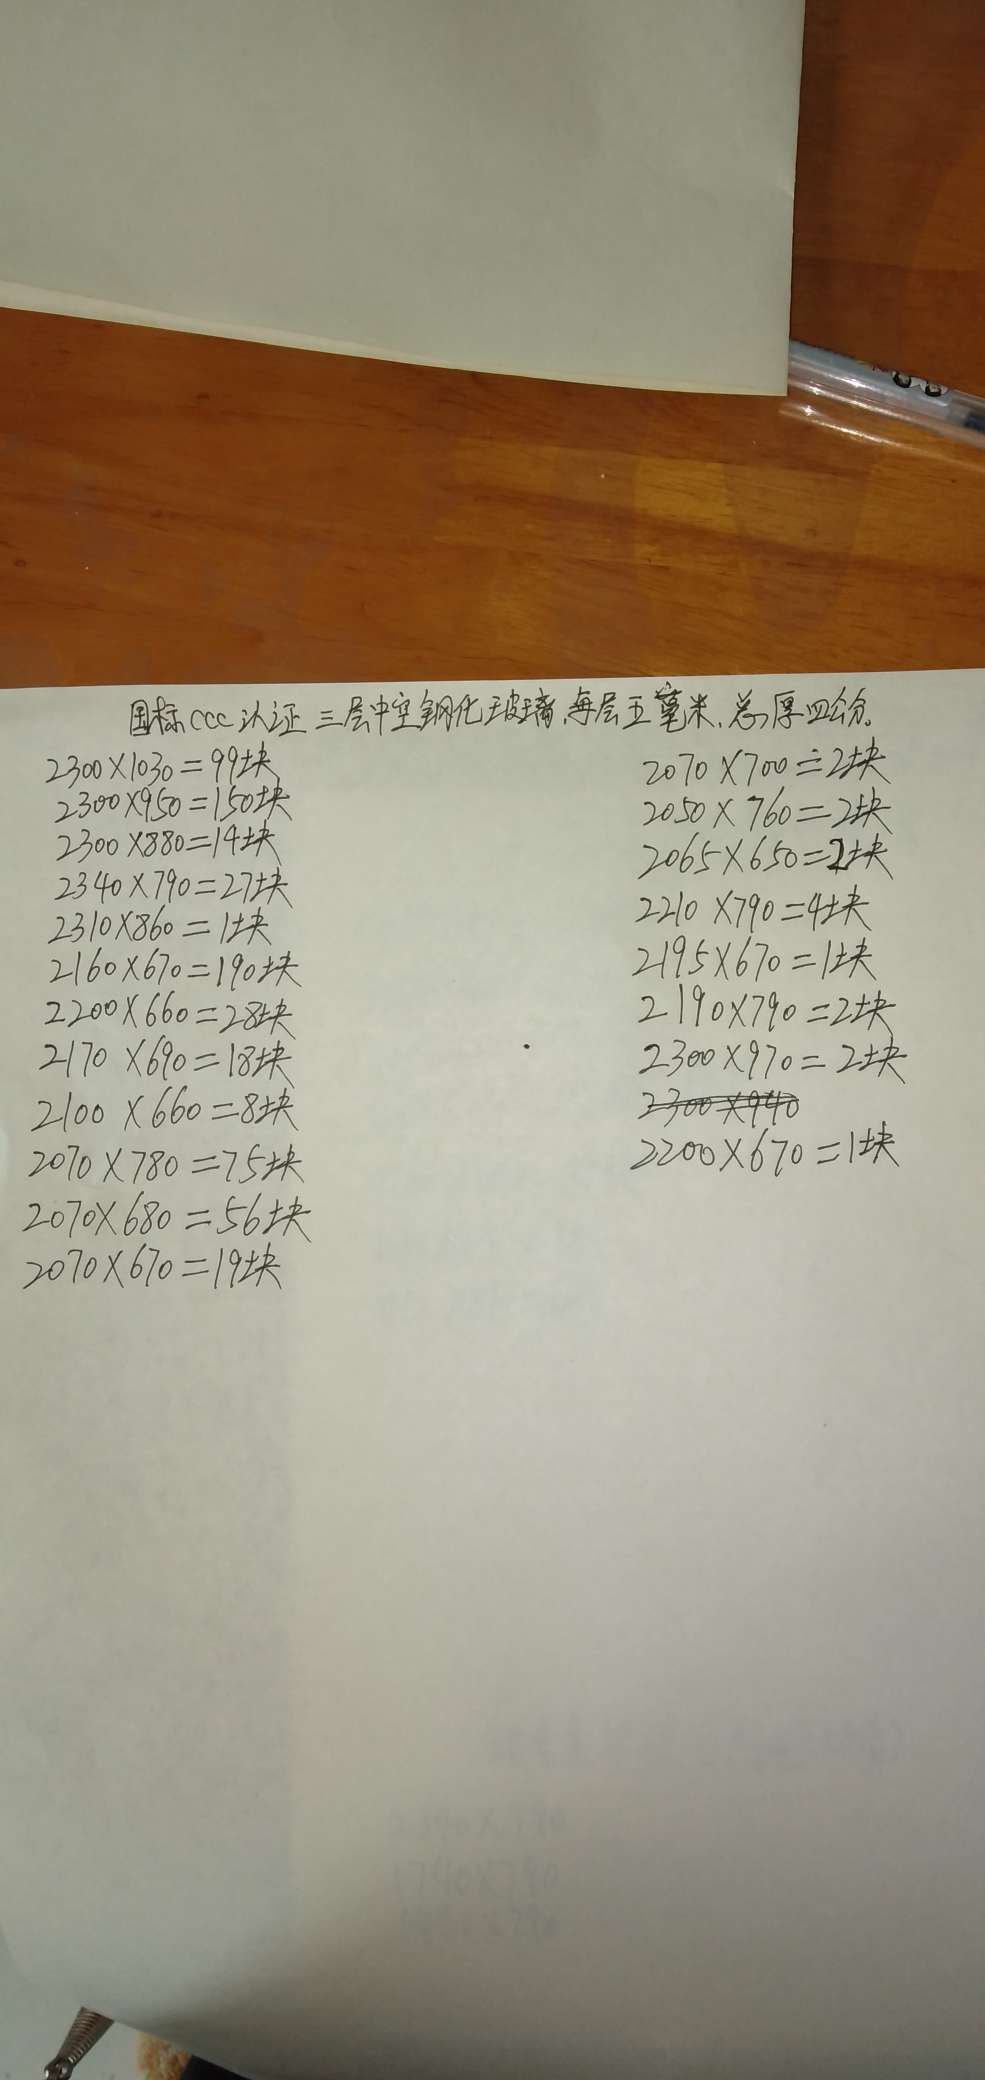 国标CCC认证 三层中空钢化玻璃.每层五毫米.总厚四公分.
2300×1030=99块
2300×950=150块
2300×880=14块
2340×790=27块
2310×860=1块
2160×670=190块
2200×660=28块
2170×690=18块
2100×660=8块
2070×780=75块
2070×680=56块
2070×670=19块
2070×700=2块
2050×760=2块
2065×650=2块
2210×790=4块
2195×670=1块
2190×790=2块
2300×970=2块
2300×940
2200×670=1块